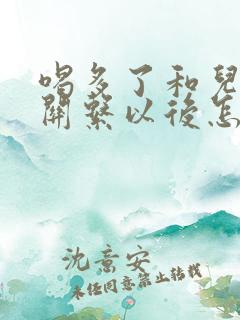 喝多了和兒
關繫以後怎
沈意安
未经同意禁止转载